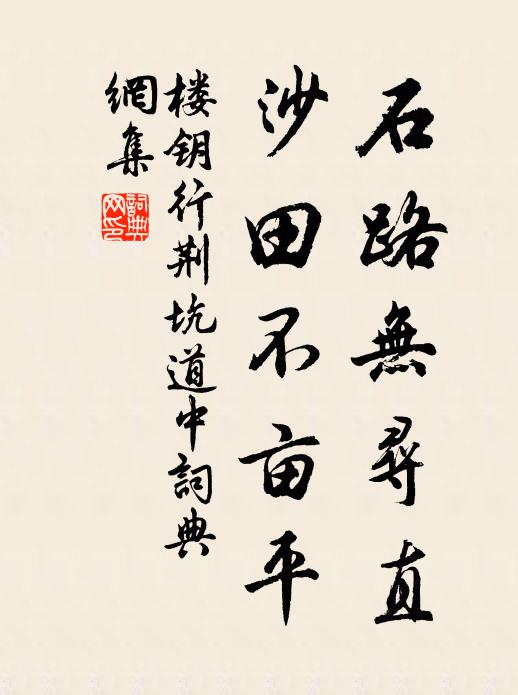 石路無尋直
沙田不亩平
楼钥行荆坑道中詞典
網集
詞典
网印